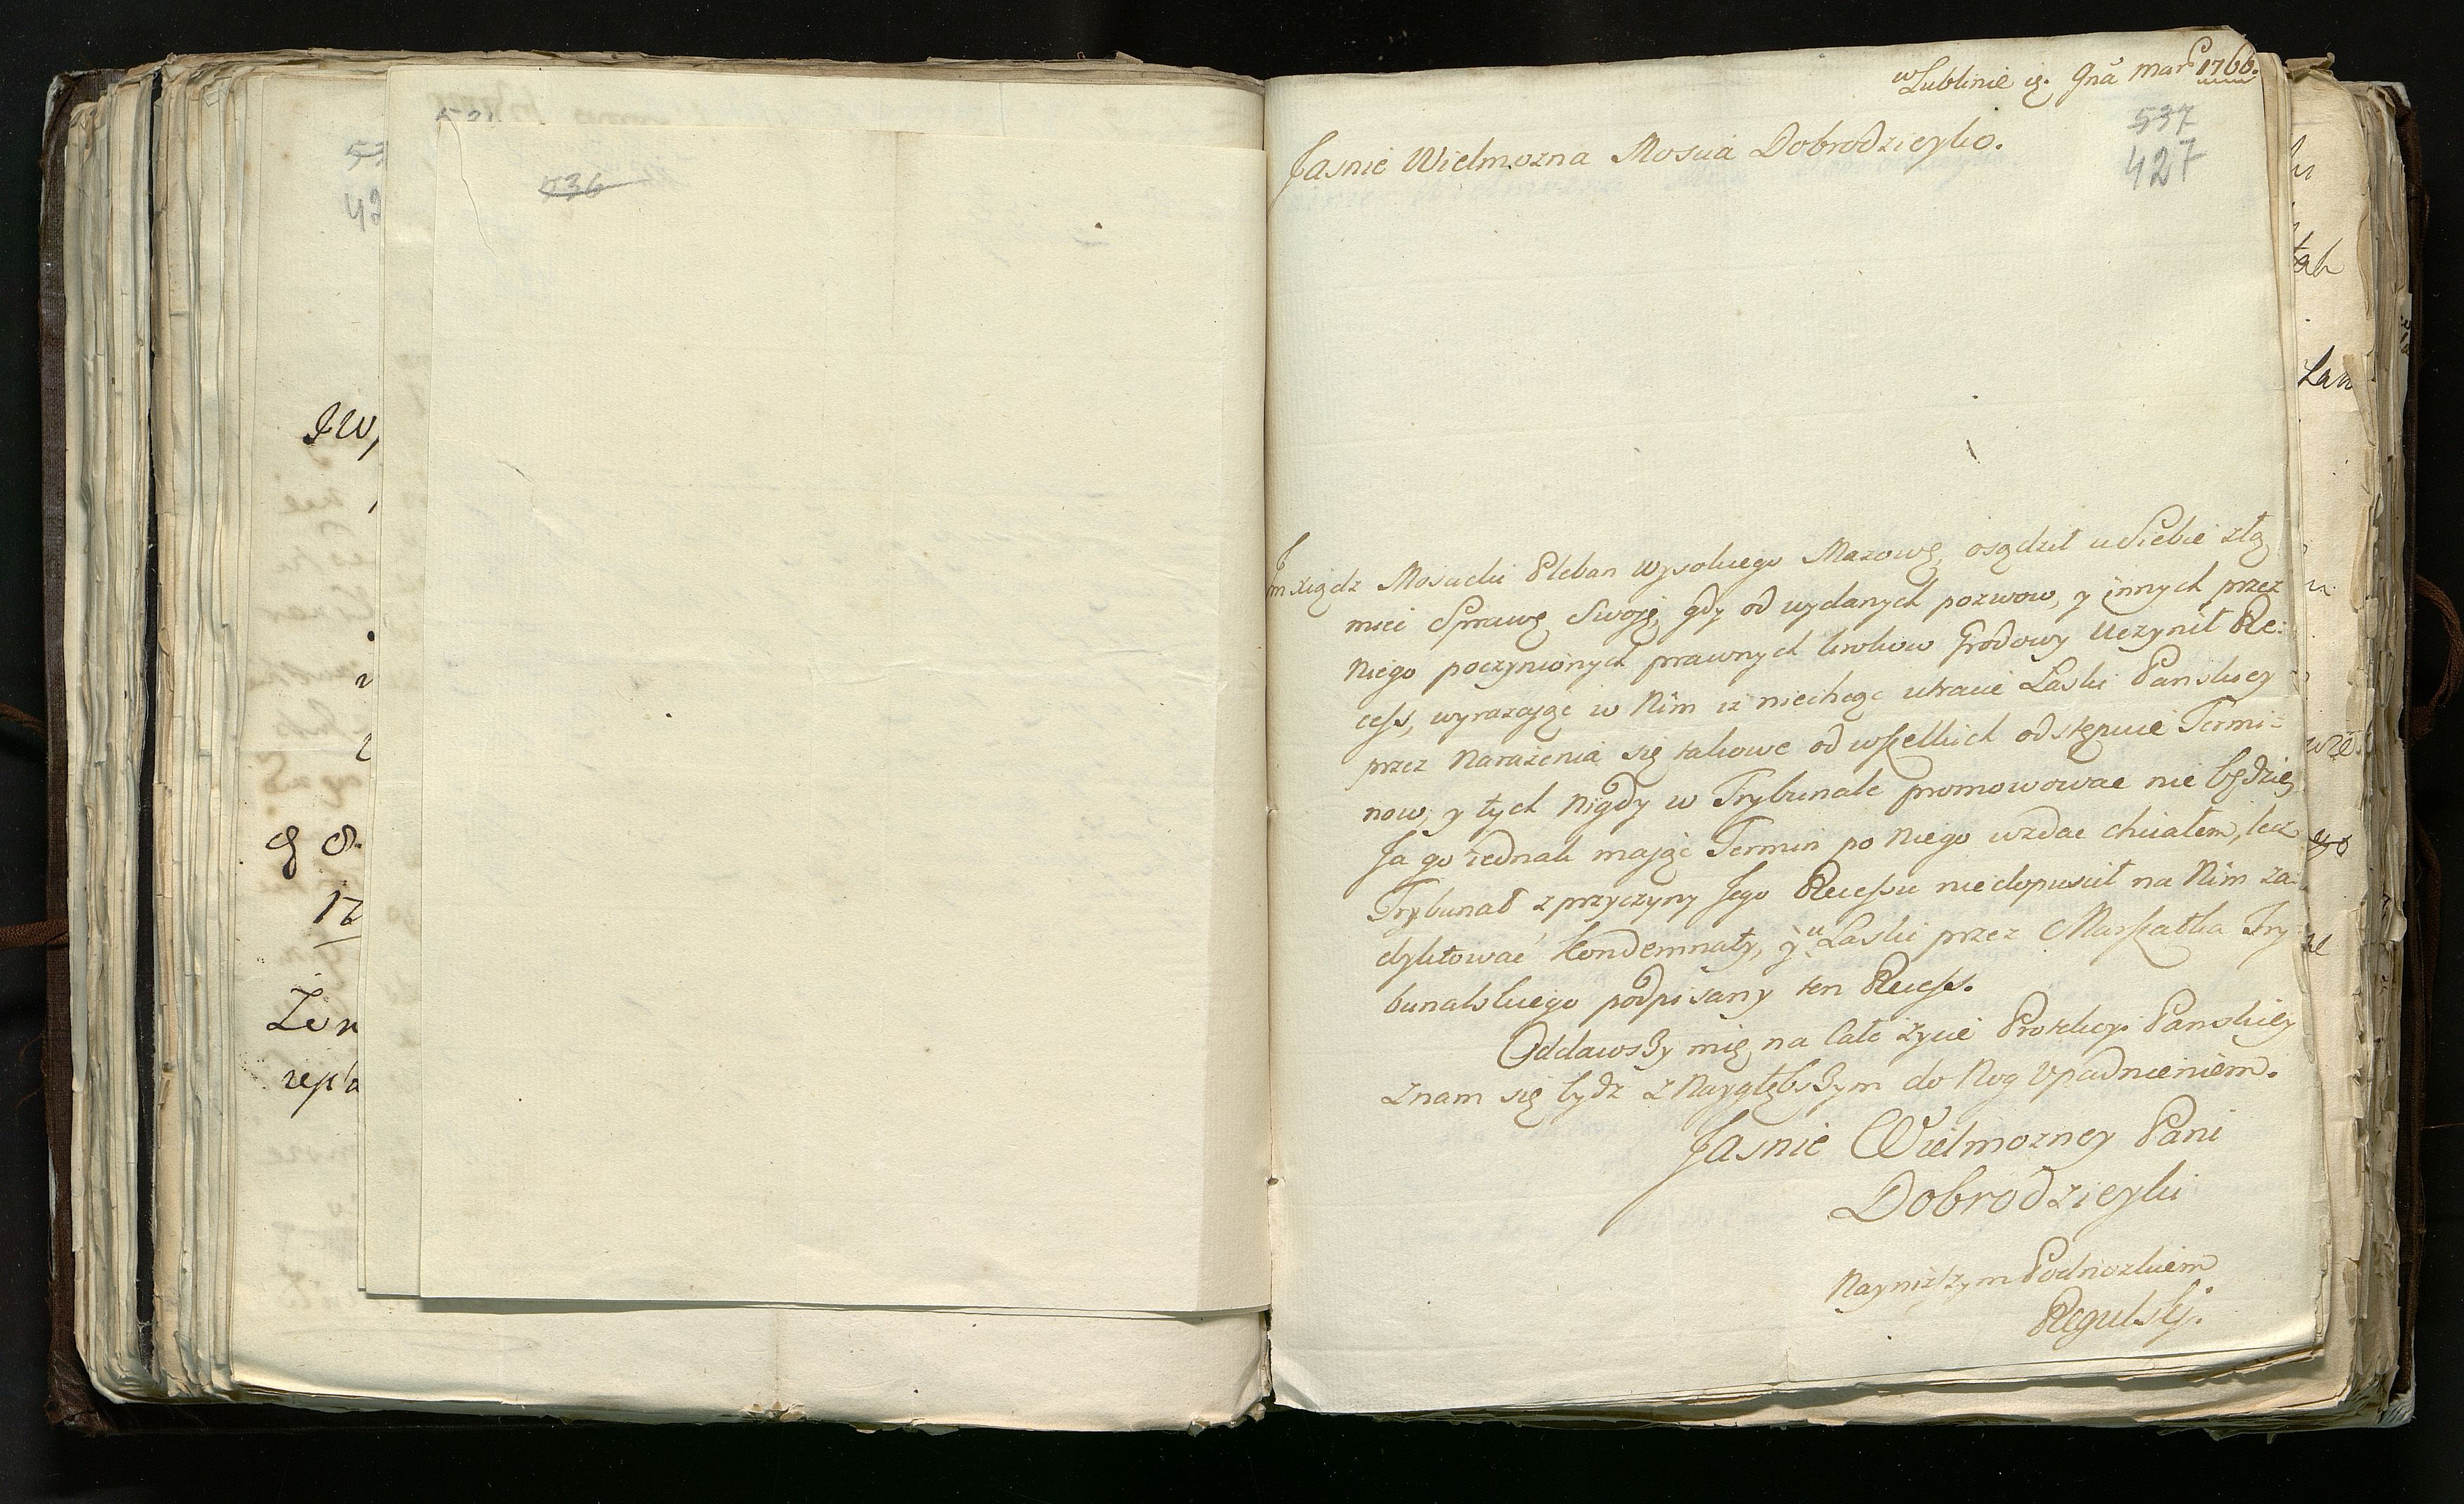 536
w Lublinie 9. Mar 1766.
537
427
Jasnie Wielmozna Moscia Dobrodzieyko.
Jm Xiądz Moscicki Pleban Wysokiego Mazowę, osądził u Siebie złą
miec Sprawę Swoię, gdy od wydanych pozwow, y innych przez
Niego poczynionych prawnych krokow Grodowy Uczynił Re:
cess, wyrazaiąc w Nim iz niechcąc utracic Łaski Panskiey
przez Narażenia się takowe od wszelkich odstępuie Termi-
now, y tych Nigdy w Trybunale promowowac nie będzie,
Ja go iednak maiąc Termin po Niego wzdac chciałem, lecz
Trybunał z przyczyny Jego Recessu niedopuscił na Nim za-
dyktować Kondemnaty, y u Laski przez Marszałka Try-
bunalskiego podpisany ten Recess.
Oddawszy mię na całe zycie Protekcyi Panskiey
znam się bydz z Naygłębszym do Nog Upadnieniem.
Jasnie Wielmozney Pani
Dobrodzieyki
Nayniższym Podnozkiem
Regulskj.